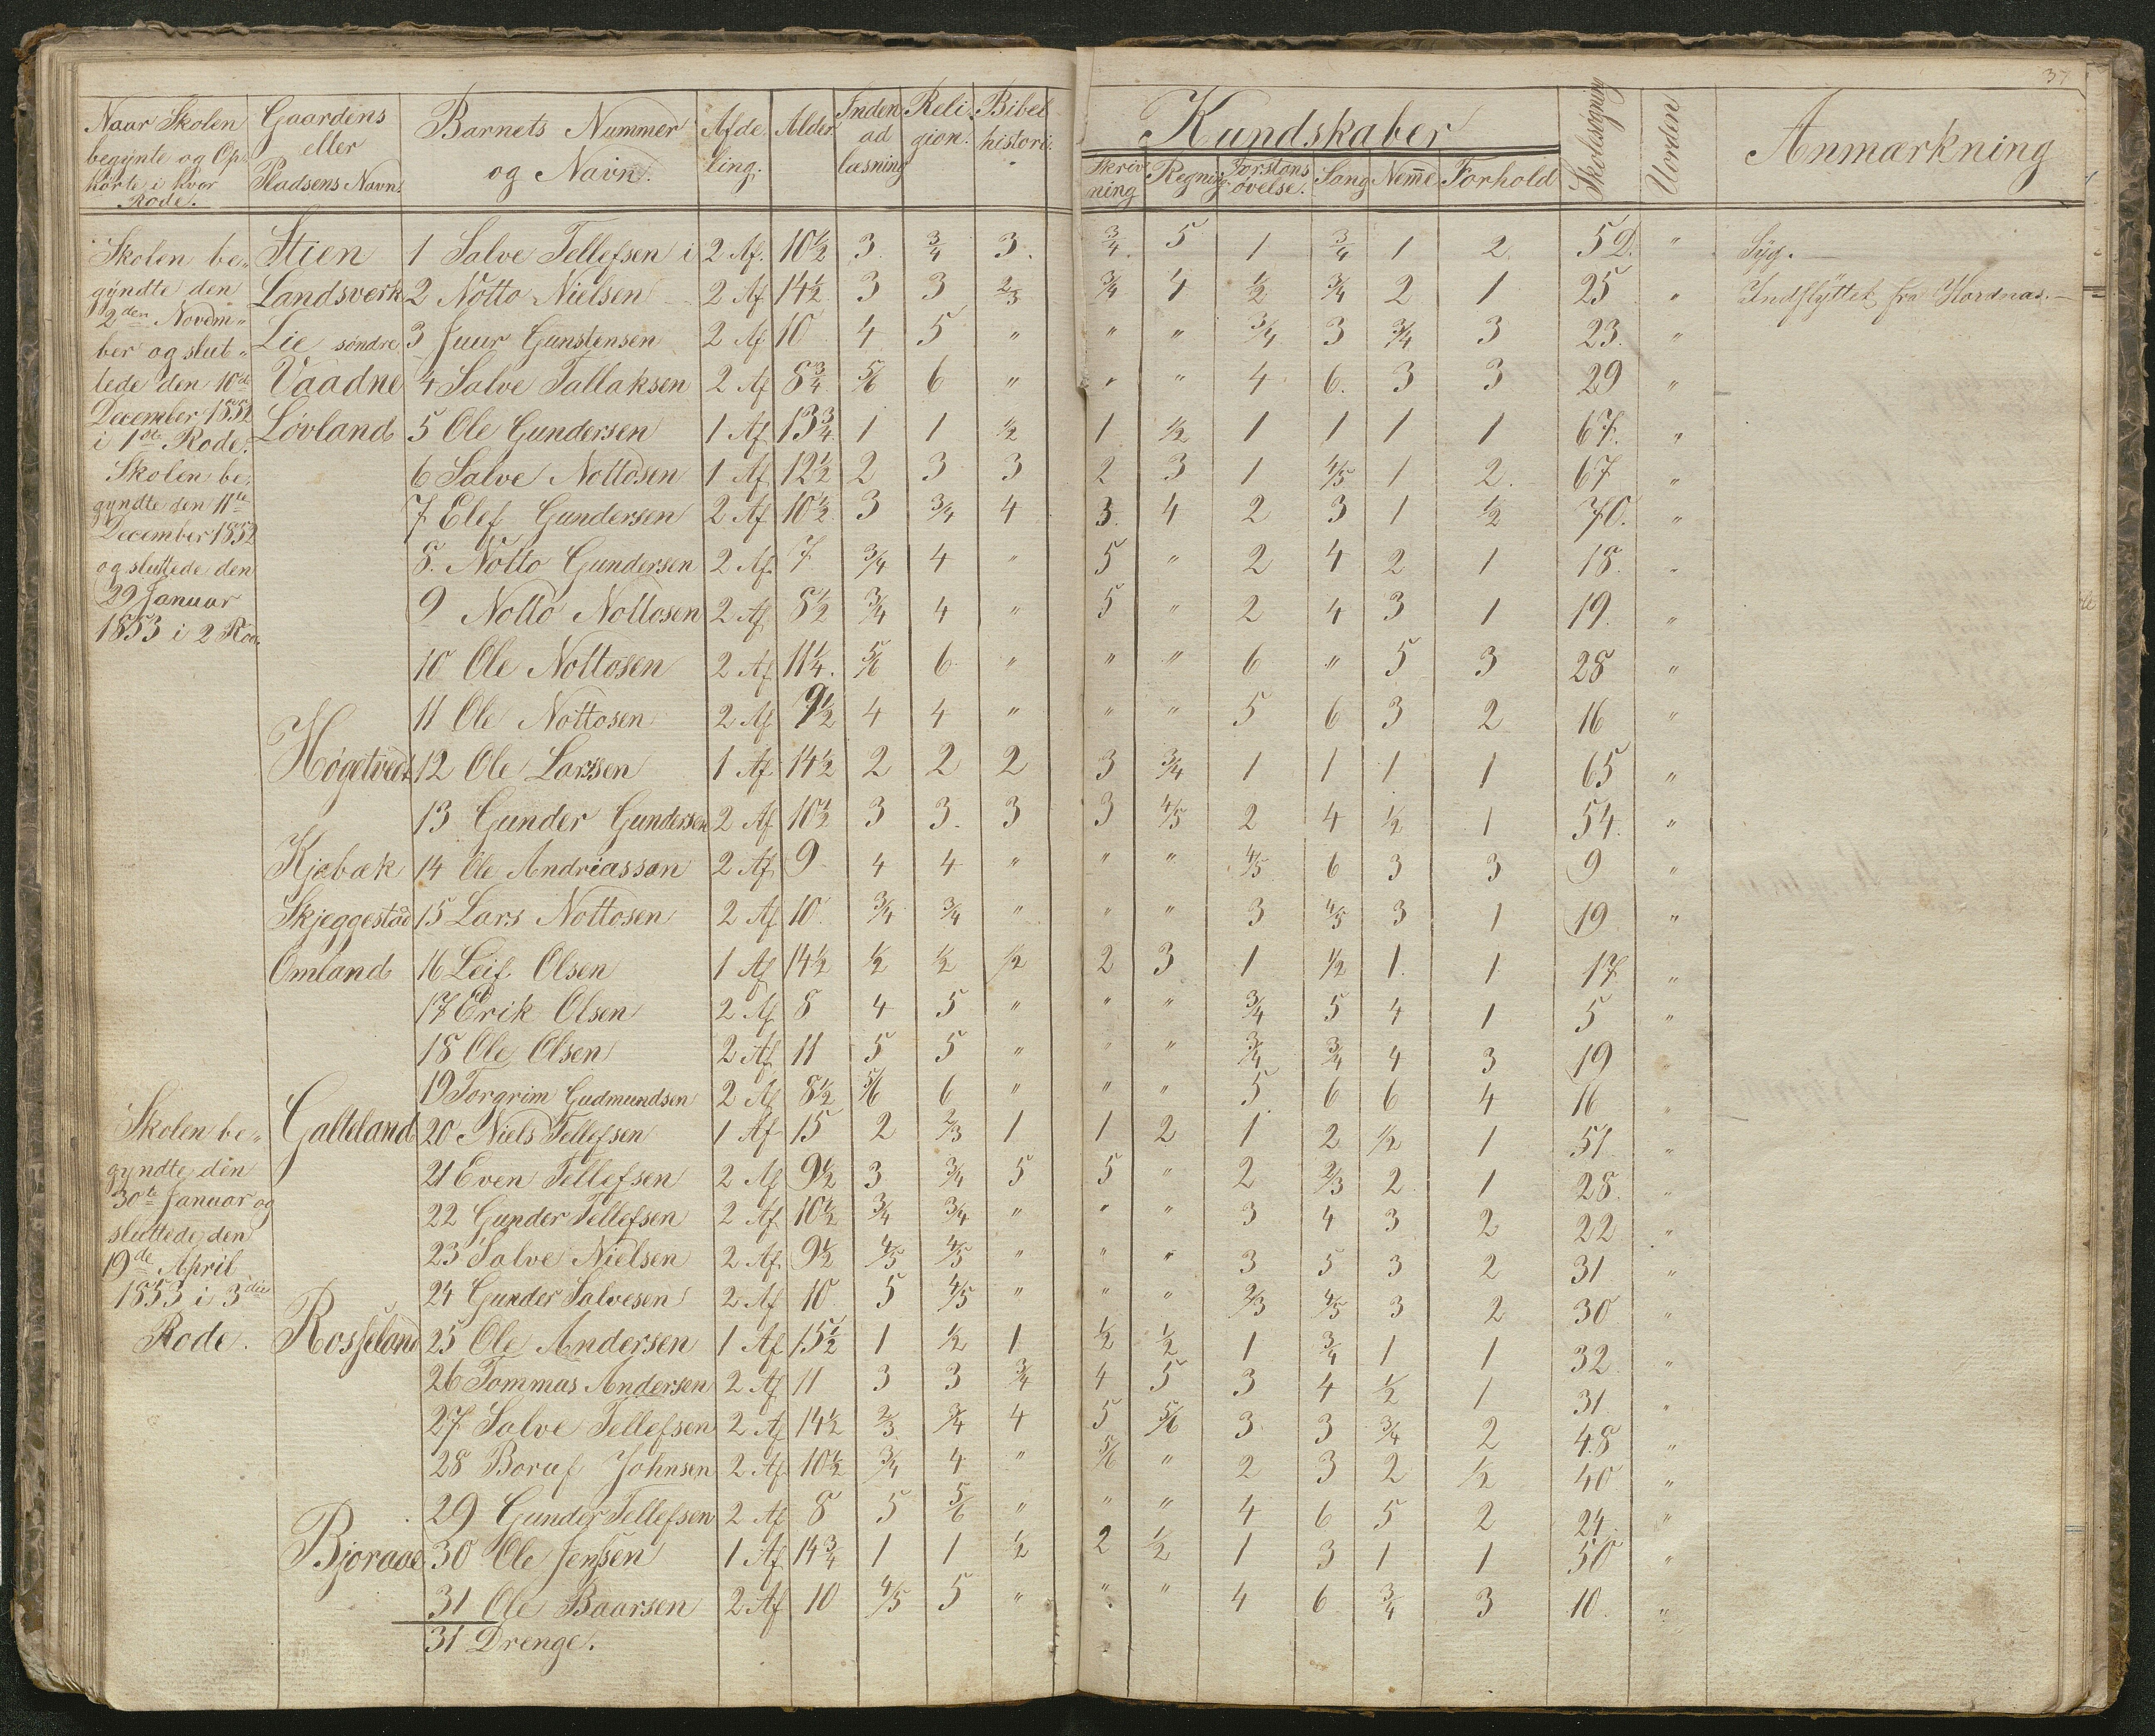 37
Naar Skolen Gaardens Barnets Nummer Afde- Alder. Inden- Reli- Bibel- Kundskaber Skolesøgning Uorden Anmærkning
begynte og Op- eller og Navn. ling. ad gion. histori. Skriv- Regning. Forstands Sang Nemme Forhold
hörte i hver Pladsens Navn. læsning ning øvelse.
Rode.
Skolen be- Stien 1 Salve Tellefsen i 2 Af. 10 1/2 3. 3/4 3. 3/4 5 1 3/4 1 2. 52. " Syg.
gyndte den Landsverk 2 Notto Nielsen 2 Af 14 1/2 3 3 2/3 3/4 4 1/2 3/4 2 1 25 " Indflyttet fra Hordnæs.
2den Novem- Lie søndre 3 Juur Gunstensen 2 Af 10 4 5 " " " 3/4 3 3/4 3 23. "
ber og slut-
tede den 10de Vaadne 4 Salve Tallaksen 2 Af 8 3/4 5/6 6 " " " 4 6. 3 3 29 "
December 1852 Løvland 5 Ole Gundersen 1 Af 13 3/4 1 1 1/2 1 1/2 1 1 1 1 67. "
i 1ste Rode.
Skolen be- 6 Salve Nottosen 1 Af 12 1/2 2 3 3 2 3 1 4/5 1 2. 67 "
gyndte den 11te 7 Elef Gundersen 2 Af 10 1/2 3 3/4 4 3. 4 2 3 1 1/2 70. "
December 1852
og sluttede den 8. Notto Gundersen 2 Af. 7 3/4 4 " 5 " 2 4 2 1 18. "
29 Januar 9 Notto Nottosen 2 Af 8 1/2 3/4 4 " 5 " 2 4 3 1 19. "
1853 i 2 Rode
10 Ole Nottosen 2 Af 11 1/4. 5/6 6 " " " 6 " 5 3 28 "
11 Ole Nottosen 2 Af 9 1/2 4 4 " " " 5 6 3 2 16 "
Høgetvedt 12 Ole Larssen 1 Af 14 1/2 2 2 2 3 3/4 1 1 1 1 65 "
13 Gunder Gundersen 2 Af 10 1/2 3 3. 3 3 4/5 2 4 1/2 1 54. "
Kjæbæk 14 Ole Andriasson 2 Af 9 4 4 " " " 4/5 6 3 3 9 "
Skjeggestad 15 Lars Nottosen 2 Af 10. 3/4 3/4 " " " 3 4/5 3 1 19 "
Omland 16 Leif Olsen 1 Af 14 1/2 1/2 1/2 1/2 2 3 1 1/2 1. 1 17. "
17 Erik Olsen 2 Af 8 4 5 " " " 3/4 5 4 1 5 "
18 Ole Olsen 2 Af 11 5 5 " " " 3/4 3/4 4 3 19 "
19 Torgrim Gudmundsen 2 Af 8 1/2 5/6 6 " " " 5 6 6 4 16 "
Skolen be- Galteland 20 Niels Tellefsen 1 Af 15 2 2/3 1 1 2 1 2 1/2 1 51. "
gyndte den 21 Even Tellefsen 2 Af 9 1/2 3 3/4 5 5 " 2 2/3 2 1 28. "
30te Januar og 22 Gunder Tellefsen 2 Af 10 1/2 3/4 3/4 " " " 3 4 3 2 22 "
sluttede den 23 Salve Nielsen 2 Af. 9 1/2 4/5 4/5 " " " 3 5 3 2 31 "
19de April
1853 i 3die 24 Gunder Salvesen 2 Af 10 5 4/5 " " " 2/3 4/5 3 2 30 "
Rode. Rosseland 25 Ole Andersen 1 Af 15 1/2 1 1/2 1 1/2 1/2 1 3/4 1 1 32. "
26 Tommas Andersen 2 Af 11 3 3 3/4 4 5 3 4 1/2 1 31 "
27 Salve Tellefsen 2 Af 14 1/2 2/3 3/4 4 5 5/6 3 3 3/4 2 48 "
28 Boruf Johnsen 2 Af 10 1/2 3/4 4 " 5/6 " 2 3 2 1/2 40 "
29 Gunder Tellefsen 2 Af 8 5 5/6 " " " 4 6 5 2 24. "
Bjoraae 30 Ole Jenssen 1 Af 14 3/4 1 1 1/2 2 1/2 1 3 1 1 50 "
31 Ole Baarsen 2 Af 10 4/5 5 " " " 4 6 3/4 3 10. "
31 Drenge.